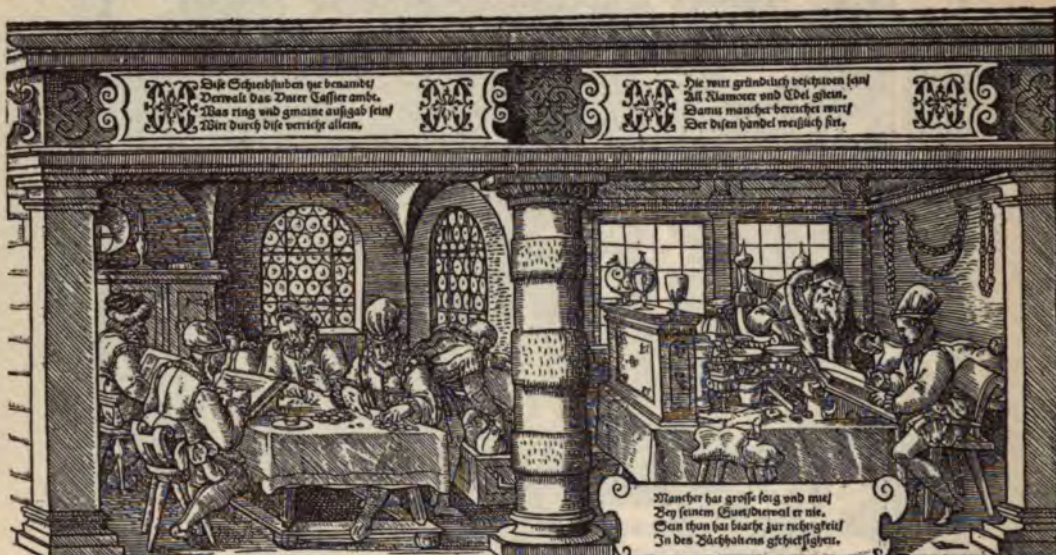 Dise Schreibstuben hie benambt/
Verwalt das Vnter Cassier ambt.
Was ring vnd gmaine außgab sein/
Wirt durch dise verricht allein.
2. Hie wirt gründtlich beschriben sein/
All Klainoter vnd Edel gstein.
Damit mancher bereichet wirt/
Der disen handel weißlich firt.
Mancher hat grosse sorg vnd mue/
Bey seinem Guet/dierweil er nie.
Sein thun hat bracht zur richtigkeit/
In des Büchhaltens gschickligkeit.